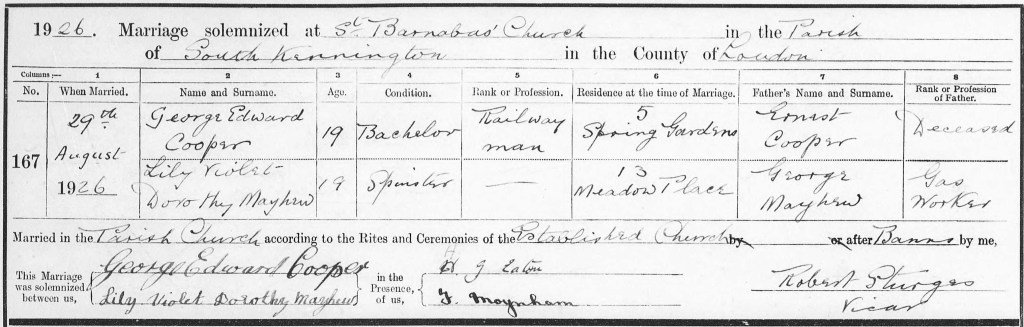 1926. Marriage solemnized at St. Barnabas' Church in the Parish
of South Kennington in the County of London
Columns :— 1 2 3 4 5 6 7 8
No. When Married. Name and Surname. Age. Condition. Rank or Profession. Residence at the time of Marriage. Father's Name and Surname. Rank or Profession of Father.
167
29th
August
1926
George Edward
Cooper
19
Bachelor
Railway
man
5
Spring Gardens
Ernest
Cooper
Deceased
Lily Violet
Dorothy Mayhew
19
Spinster
—
13
Meadow Place
George
Mayhew
Gas
Worker
Married in the Parish Church according to the Rites and Ceremonies of the Established Church by or after Banns by me,
This Marriage
was solemnized
between us,
George Edward Cooper
Lily Violet Dorothy Mayhew
in the
Presence
of us,
H G Eaton
F. Moynham
Robert Sturges
Vicar